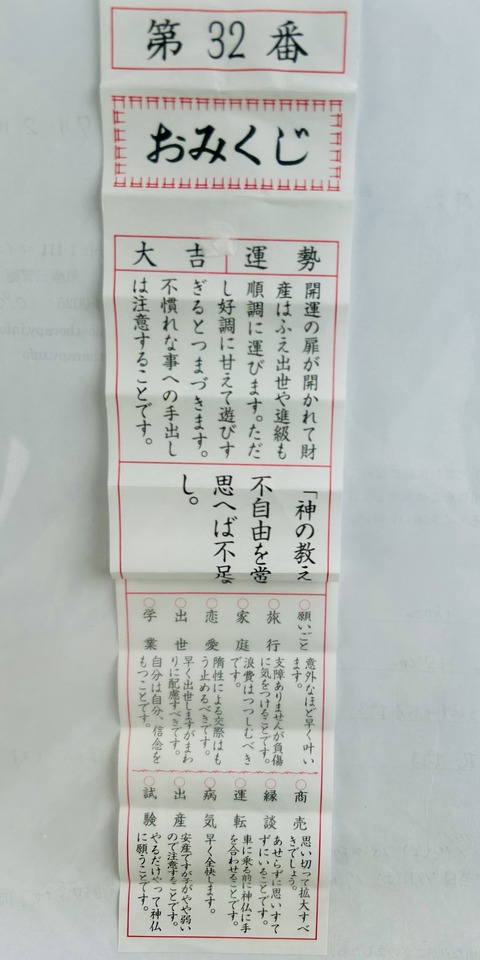 第 32 番
おみくじ
運勢
大吉
開運の扉が開かれて財
産はふえ出世や進級も
順調に運びます。ただ
し好調に甘えて遊びす
ぎるとつまづきます。
不慣れな事への手出し
は注意することです。
「神の教え
不自由を常
思へば不足
し。
○願いごと
意外なほど早く叶い
ます。
○旅行
支障ありませんが負傷
に気をつけることです。
○家庭
浪費はつつしむべき
です。
○恋愛
惰性による交際はも
う止めるべきです。
○出世
早く出世しますがまわ
りに配慮すべきです。
○学業
自分は自分、信念を
もつことです。
○商売
思い切って拡大すべ
きでしょう。
○縁談
あせらずに思いすて
ずにいることです。
○運転
車に乗る前に神仏に手
を合わせることです。
○病気
早く全快します。
○出産
安産ですが子がやや弱い
ので注意することです。
○試験
やるだけやって神仏
に願うことです。